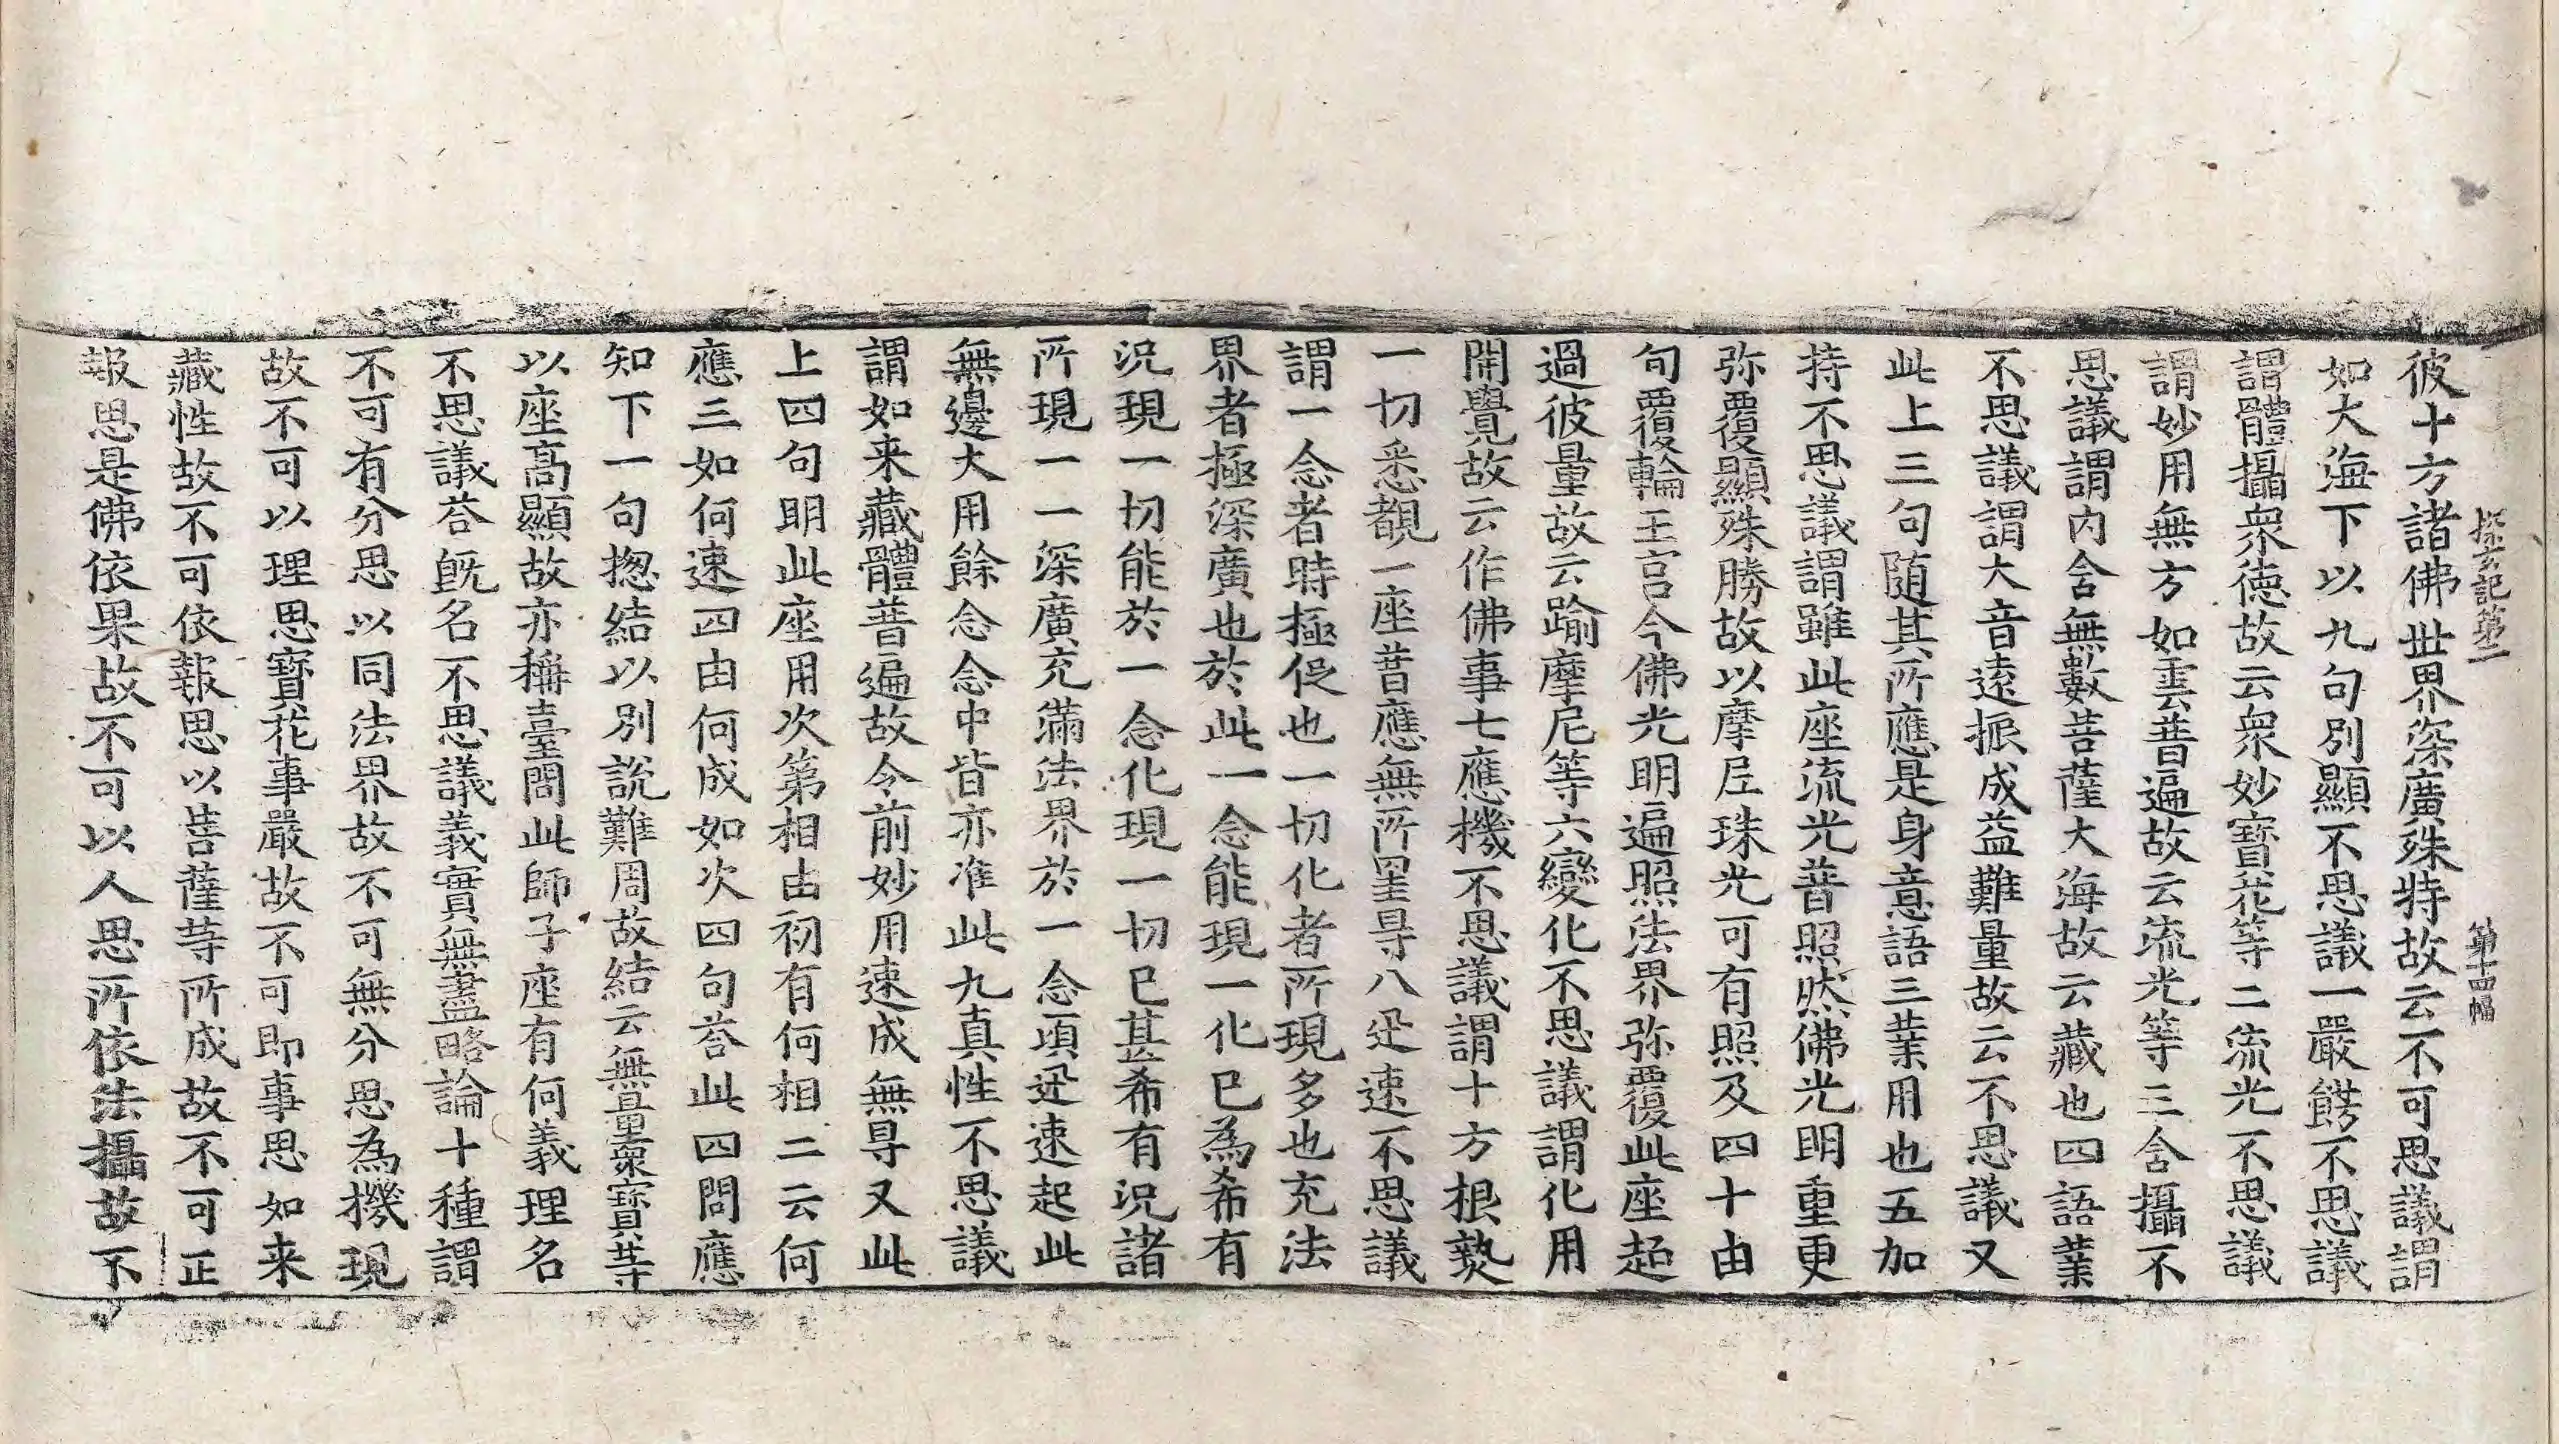 探玄記第二　第十四幅
彼十方諸佛世界深廣殊特故云不可思議謂
如大海下以九句別顯不思議一嚴餝不思議
謂體攝衆徳故云衆妙寶花等二流光不思議
謂妙用無方如雲普遍故云流光等三含攝不
思議謂内含無數菩薩大海故云藏也四語業
不思議謂大音遠振成益難量故云不思議又
此上三句随其所應是身意語三業用也五加
持不思議謂雖此座流光普照然佛光明重更
弥覆顯殊勝故以摩尼珠光可有照及四十由
旬覆輪王宮今佛光明遍照法界弥覆此座超
過彼量故云踰摩尼等六變化不思議謂化用
開覺故云作佛事七應機不思議謂十方根熟
一切悉覩一座普應無所罣㝵八迅速不思議
謂一念者時極促也一切化者所現多也充法
界者極深廣也於此一念能現一化已為希有
況現一切能於一念化現一切已甚希有況諸
所現一一深廣充滿法界於一念頃迅速起此
無邊大用餘念念中皆亦准此九真性不思議
謂如来藏體普遍故令前妙用速成無㝵又此
上四句明此座用次第相由初有何相二云何
應三如何速四由何成如次四句荅此四問應
知下一句揔結以別說難周故結云無量衆寶等
以座高顯故亦稱臺問此師子座有何義理名
不思議荅旣名不思議義實無盡略論十種謂
不可有分思以同法界故不可無分思為機現
故不可以理思寶花事嚴故不可即事思如来
藏性故不可依報思以菩薩等所成故不可正
報思是佛依果故不可以人思所依法攝故不